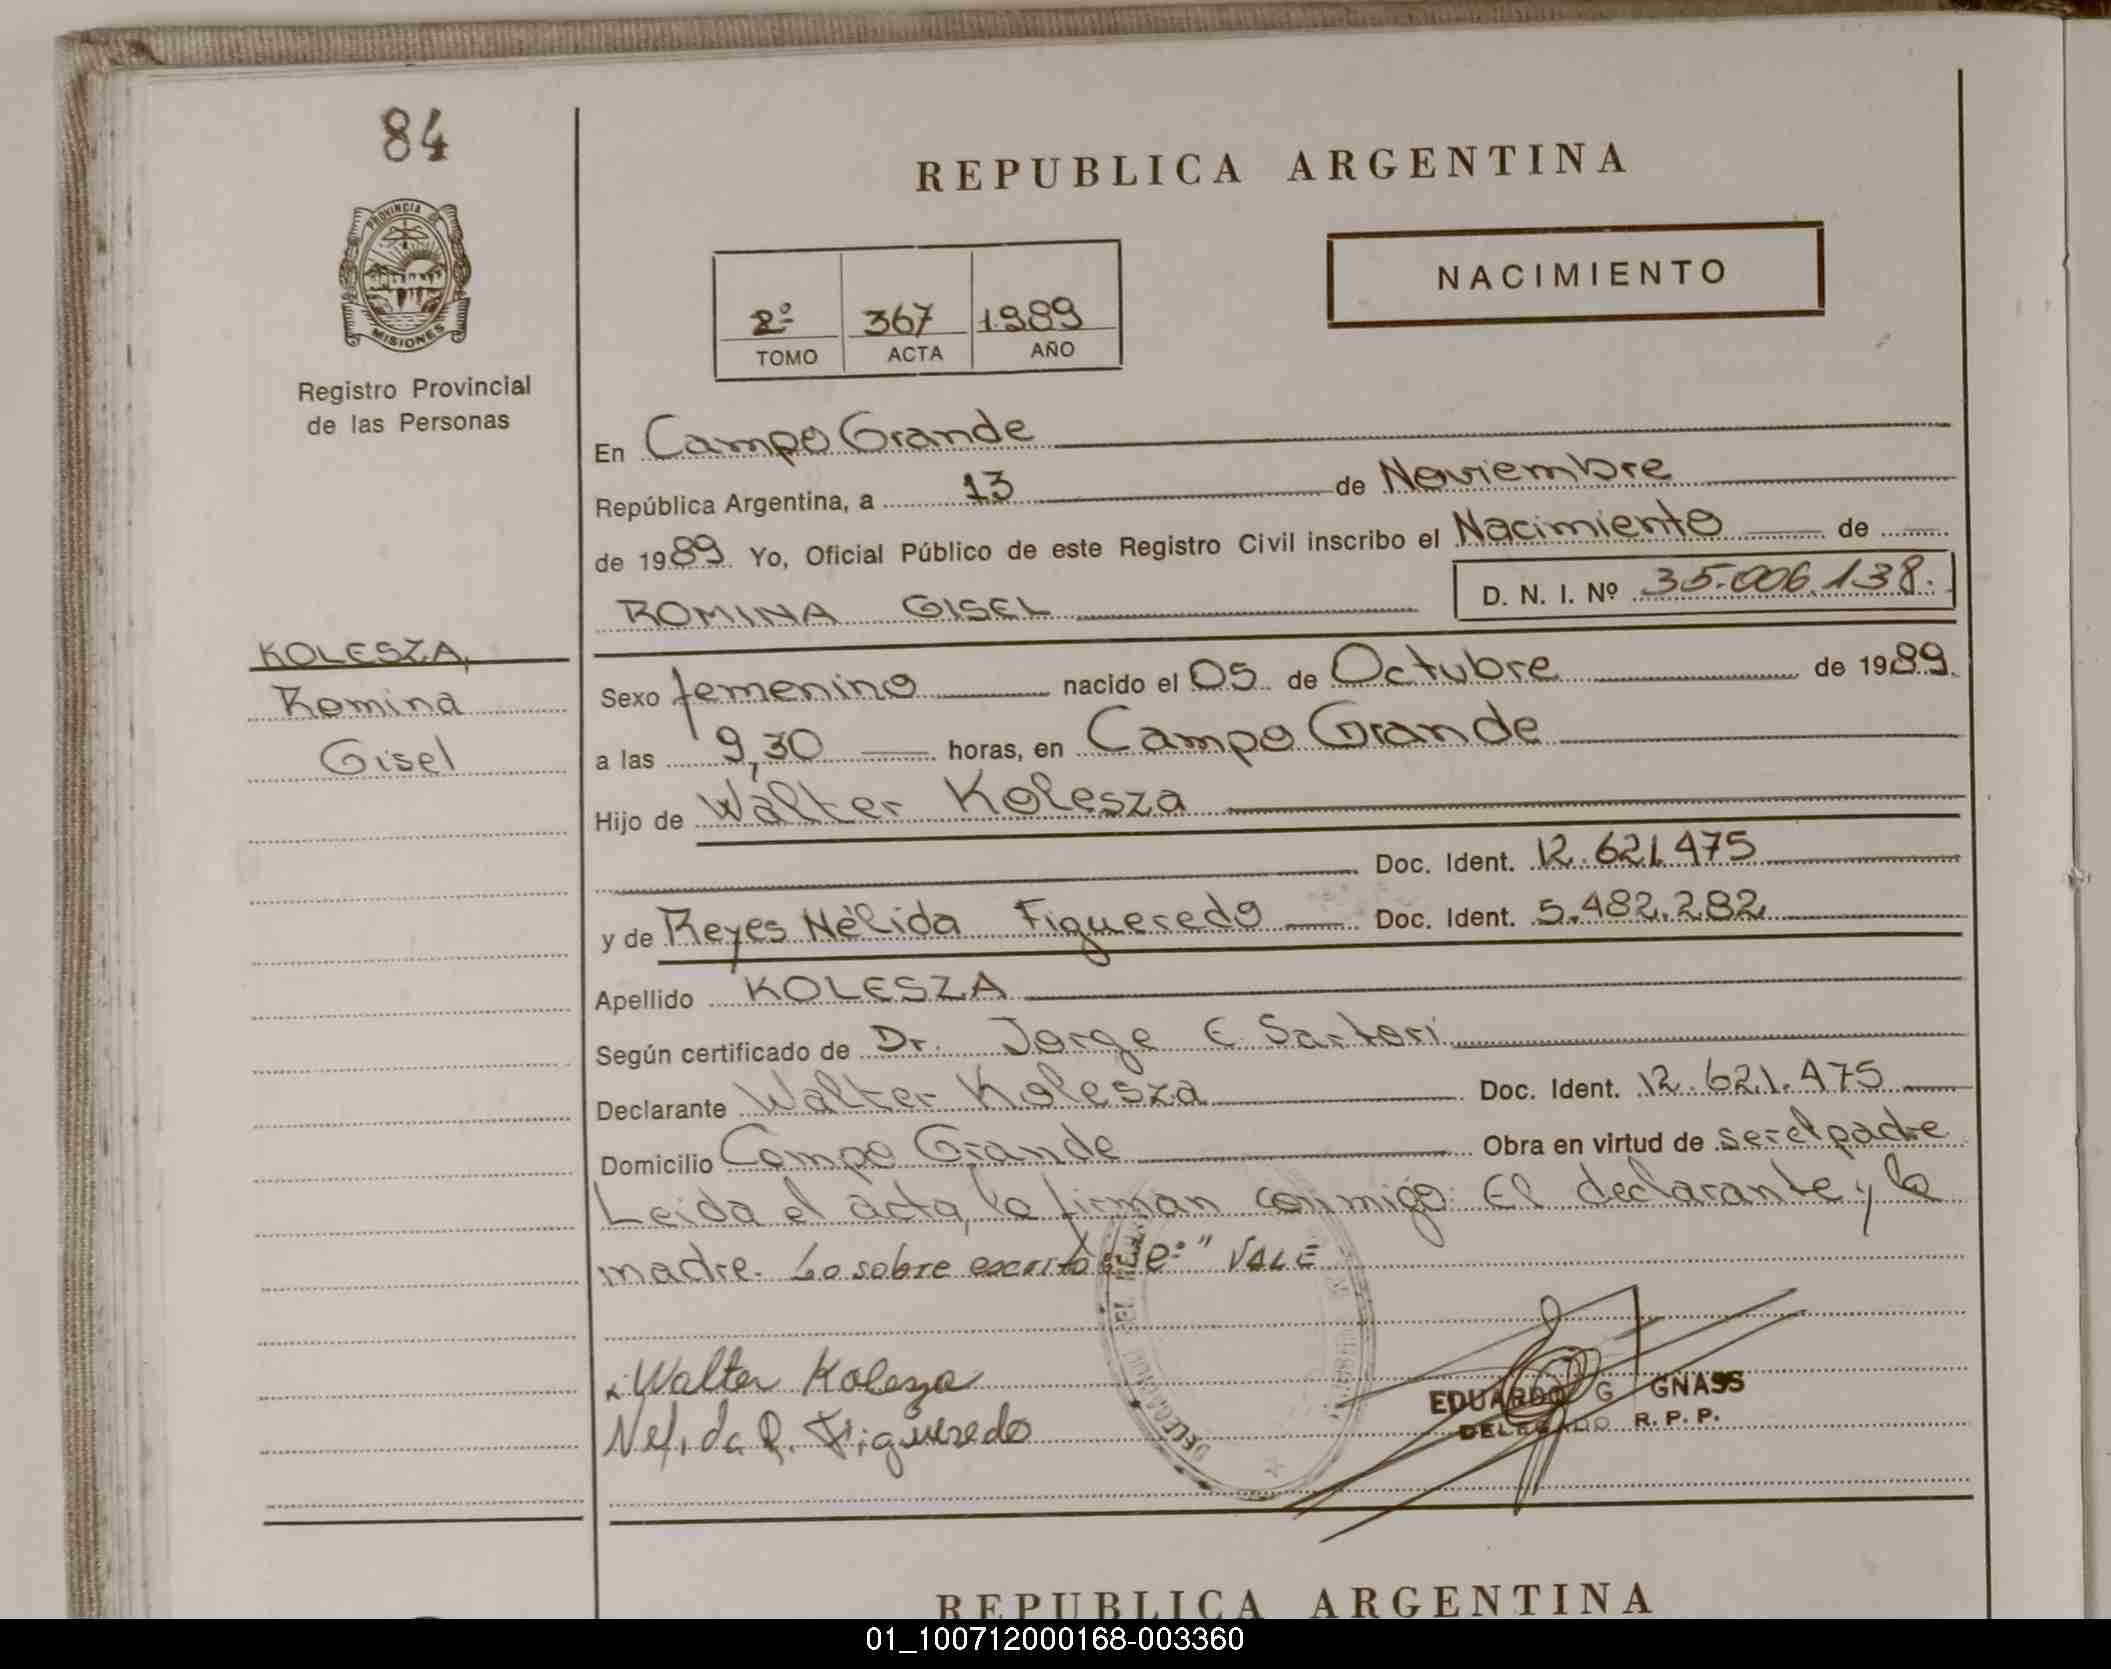 84
PROVINCIA DE
MISIONES
Registro Provincial
de las Personas
REPUBLICA ARGENTINA
NACIMIENTO
2º 367 1989
TOMO ACTA AÑO
En Campo Grande
República Argentina, a 13 de Noviembre
de 1989. Yo, Oficial Público de este Registro Civil inscribo el Nacimiento de
ROMINA GISEL D. N. I. Nº 35.006.138.
KOLESZA,
Romina
Gisel
Sexo femenino nacido el 05 de Octubre de 1989.
a las 9,30 horas, en Campo Grande
Hijo de Walter Kolesza
Doc. Ident. 12.621.475
y de Reyes Nélida Figueredo Doc. Ident. 5.482.282
Apellido KOLESZA
Según certificado de Dr. Jorge E Sartori
Declarante Walter Kolesza Doc. Ident. 12.621.475
Domicilio Campo Grande Obra en virtud de ser el padre
Leida el acta, la firman conmigo: El declarante y la
madre. Lo sobre escrito "2º" VALE
Walter Kolesza
Nelida R. Figueredo
EDUARDO G GNASS
DELEGADO R. P. P.
REPUBLICA ARGENTINA
01_100712000168-003360